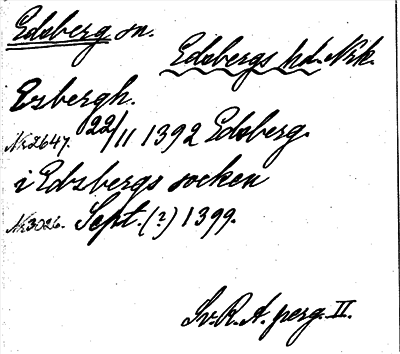 Edsberg sn.
Edsbergs hd. Nrk.
Esbergh.
Nr 2647. 22/11 1392 Edsberg.
i Edsbergs socken
Nr 3026. Sept. (?) 1399.
Sv. R. A. perg. II.